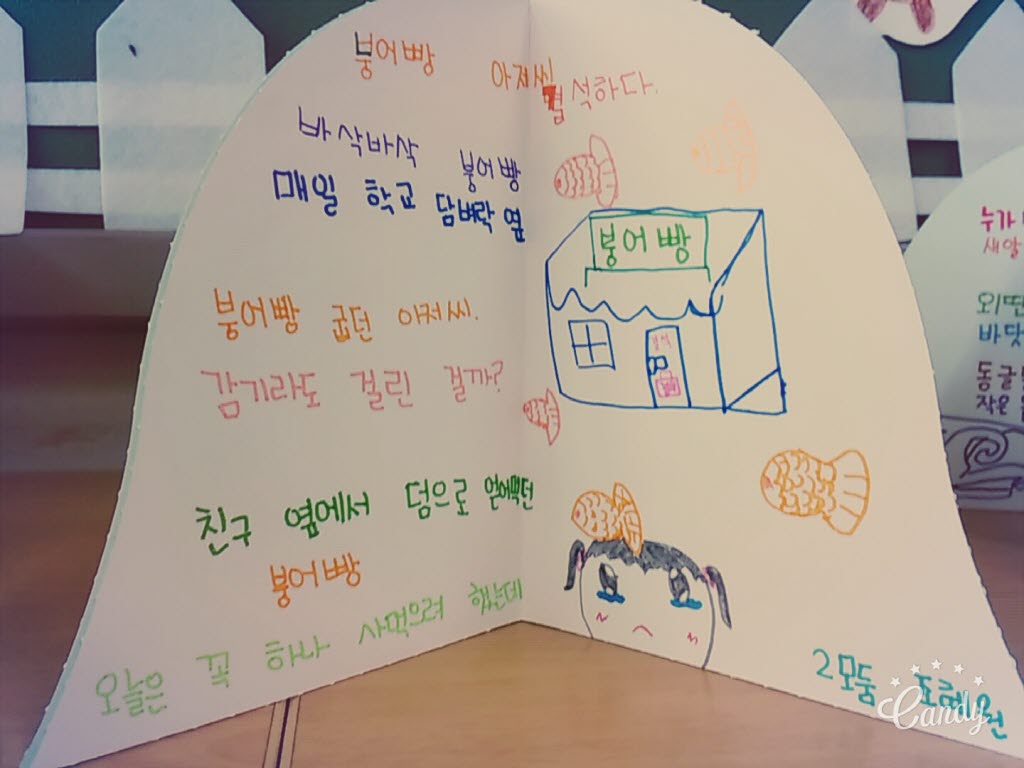 붕어빵 아저씨 결석하다.
바삭바삭 붕어빵
매일 학교 담벼락 옆
붕어빵 굽던 아저씨.
감기라도 걸린 걸까?
친구 옆에서 덤으로 얻어먹던
붕어빵
오늘은 꼭 하나 사먹으려 했는데
붕어빵
2모둠
Candy
누가
새알
외딴
바닷
동글
작은